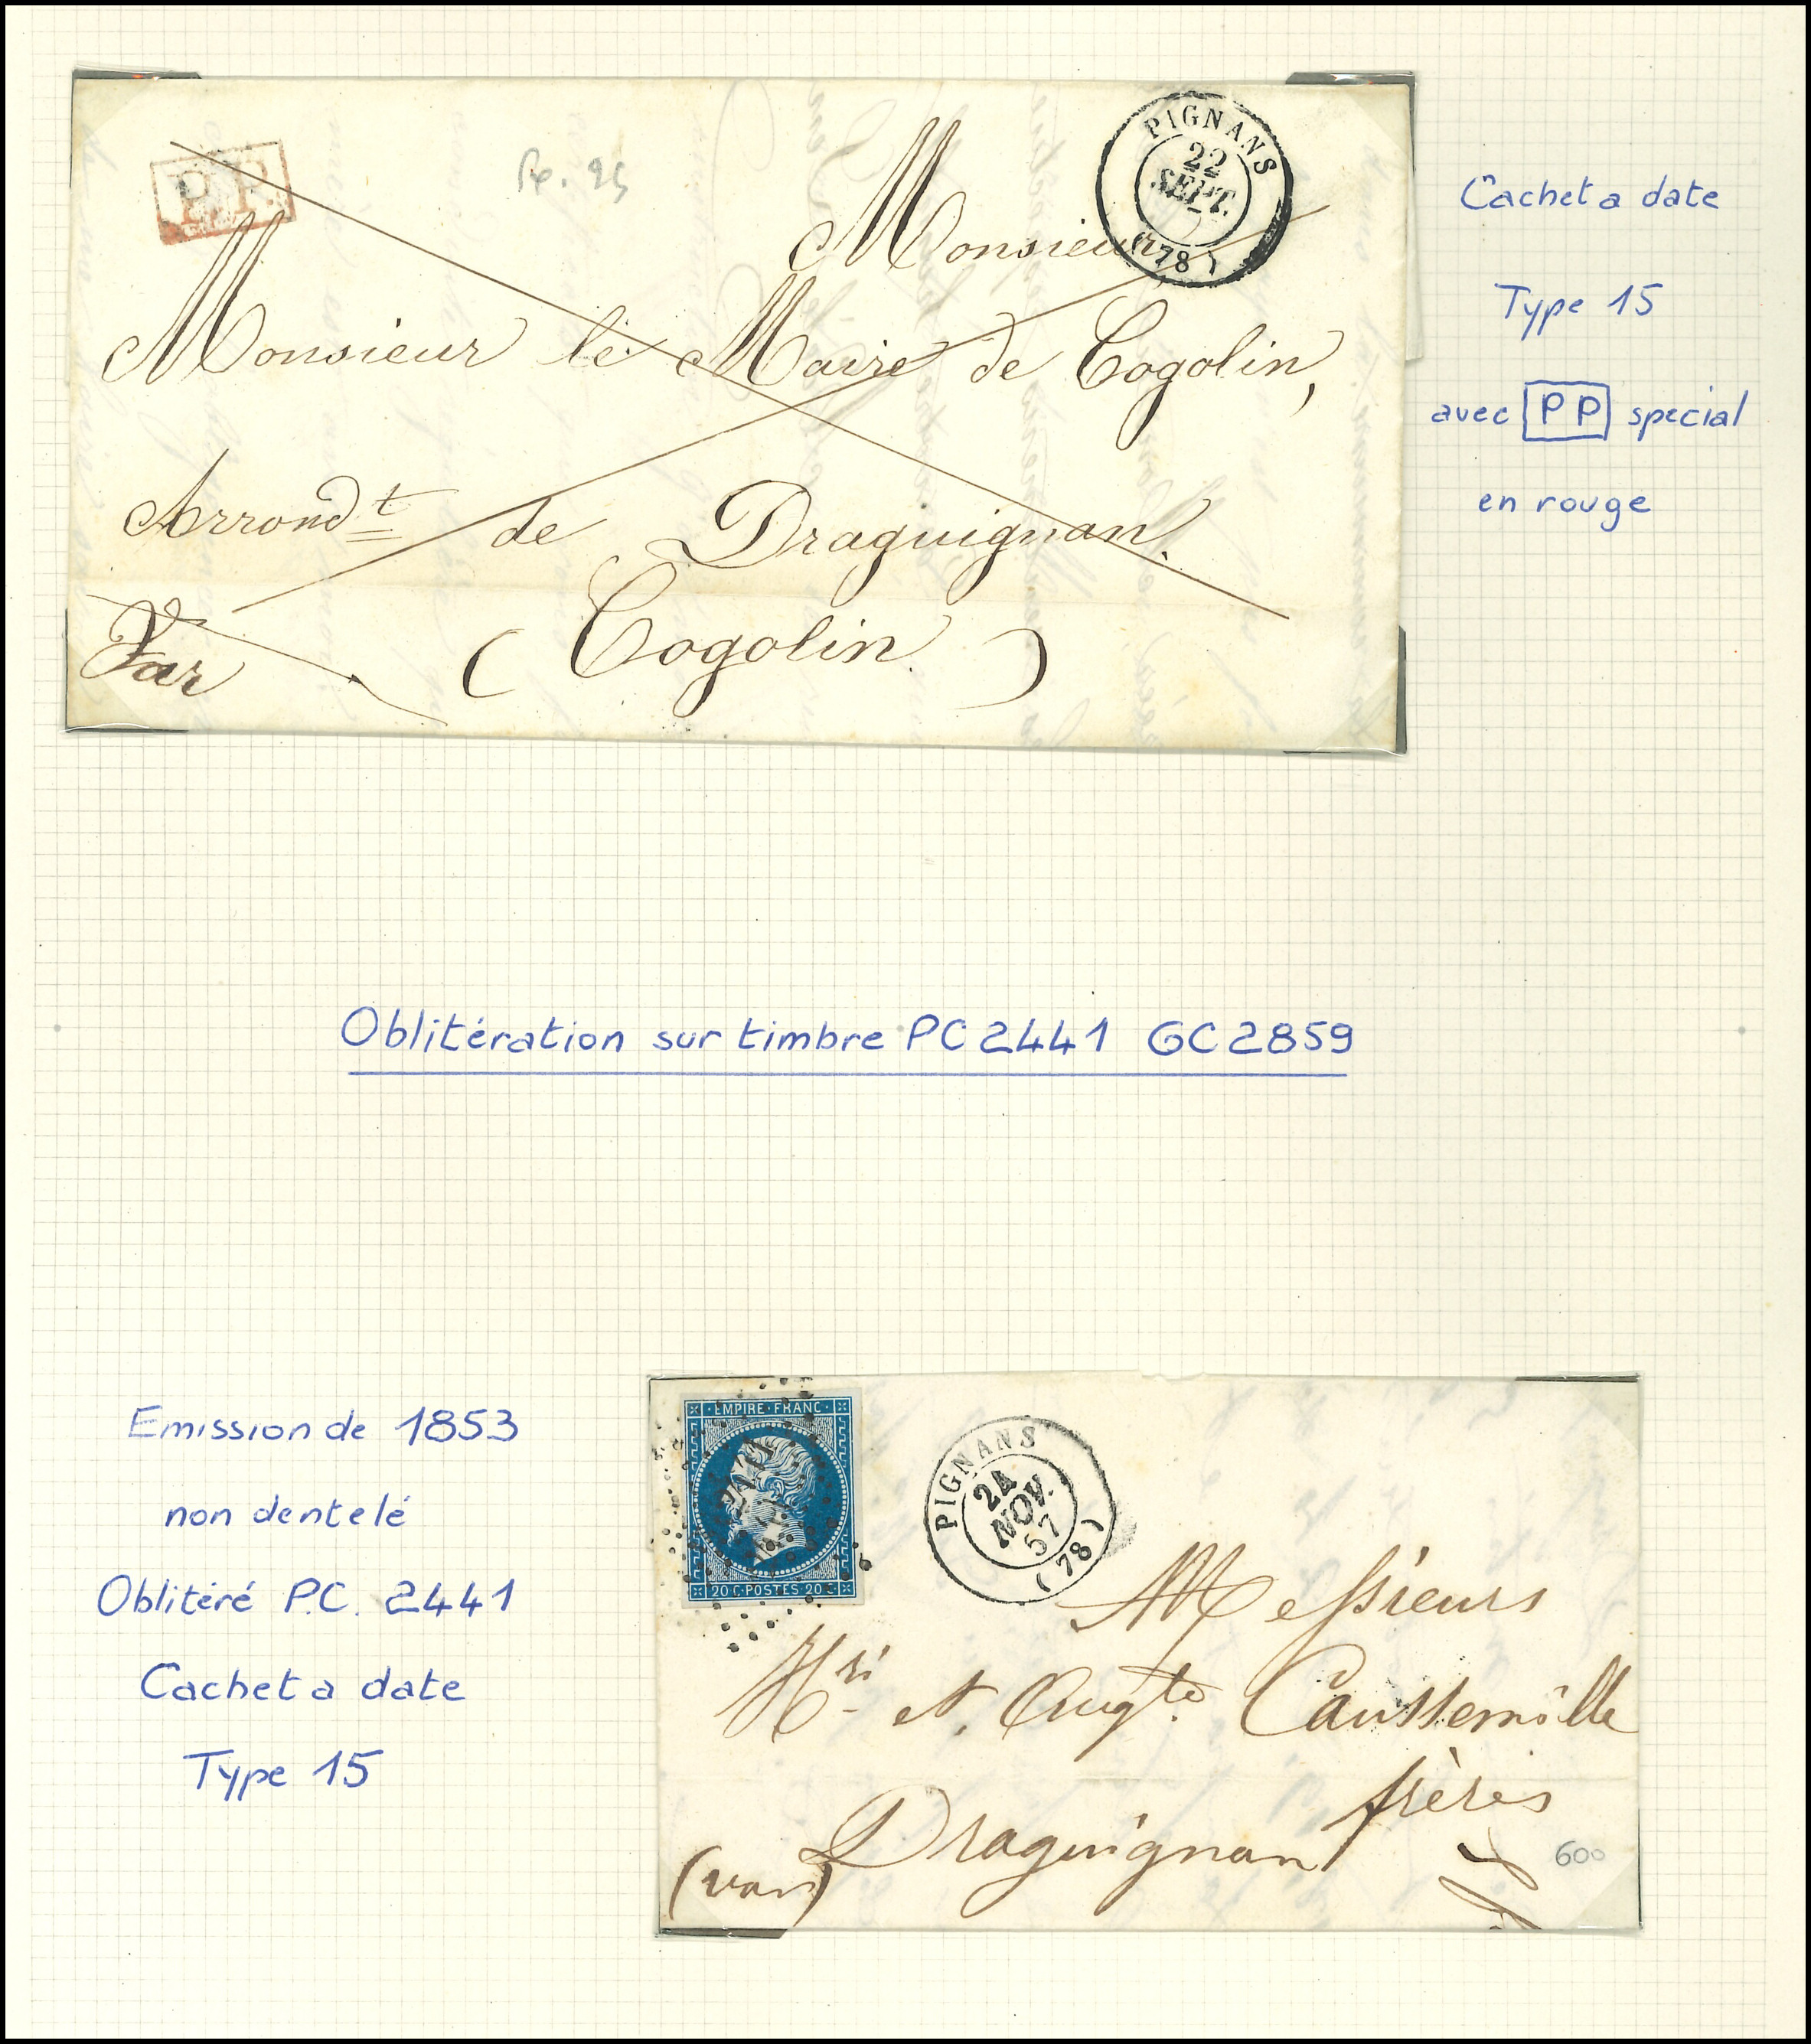 P.P.
PIGNANS
22
SEPT.
(78)
Monsieur
Monsieur le Maire de Cogolin,
Arrond.t de Draguignan.
Var
( Cogolin )
Cachet a date
Type 15
avec PP special
en rouge
Oblitération sur timbre PC 2441 GC 2859
Emission de 1853
non dentelé
Oblitéré P.C. 2441
Cachet a date
Type 15
EMPIRE FRANC
2441
20 C POSTES 20 C
PIGNANS
24
NOV.
57
(78)
Messieurs
Hri et Augte Caussemille
frères
Draguignan
(Var)
600